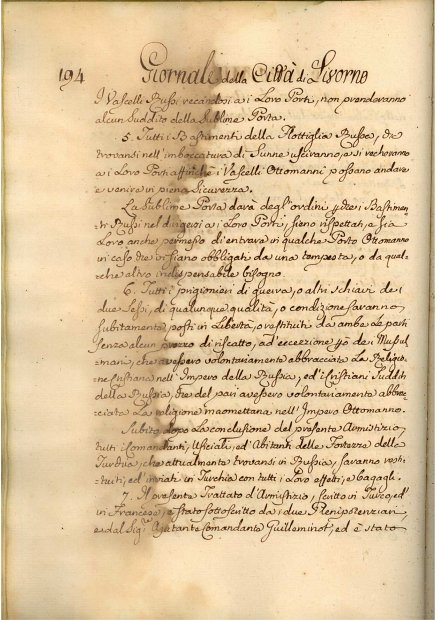 194 Giornale della Città di Livorno
I Vascelli Russi recandosi a i Loro Porti, non prenderanno
alcun Suddito della Sublime Porta.
5. Tutti i Bastimenti della Flottiglia Russa, che
trovansi nell'imboccatura di Sunne usciranno, e si recheranno
a i Loro Porti affinchè i Vascelli Ottomanni possano andare
e venire in piena Sicurezza.
La Sublime Porta darà degl'ordini perche i Bastimen-
ti Russi nel dirigersi a i Loro Porti, sieno rispettati, e sia
Loro anche permesso di entrare in qualche Porto Ottomanno
in caso che vi siano obbligati da una tempesta, o da qual
che altro indispensabile bisogno.
6. Tutti i prigionieri di guerra, o altri schiavi dei
due Sessi, di qualunque qualità, o condizione saranno
subitamente posti in Libertà, o restituiti da ambe Le parti
senza alcun prezzo di riscatto, ad eccezione però dei Musul
mani, che avessero volontariamente abbracciata La Religio
ne Cristiana nell'Impero della Russia, ed i Cristiani Sudditi
della Russia, che del pari avessero volontariamente abbra
cciata La religione maomettana nell'Impero Ottomanno.
Subito dopo La conclusione del presente Armistizio
tutti i Comandanti, Ufiziali, ed Abitanti delle Fortezze della
Turchia, che attualmente trovansi in Russia, saranno resti-
tuiti, ed inviati in Turchia con tutti i Loro effetti, e bagagli.
7. Il presente Trattato d'Armistizio, scritto in Turco, ed'
in Francese, è stato sottoscritto da i due Plenipotenziari
e dal Sig.e Ajutante Comandante Guilleminot, ed è stato